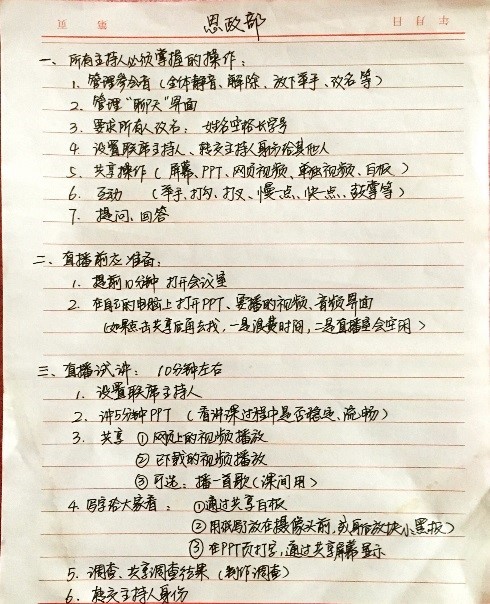 思政部
页 第 日 月 年
一、所有主持人必须掌握的操作：
1. 管理参会者（全体静音、解除、放下举手、改名等）
2. 管理“聊天”界面
3. 要求所有人改名： 姓名空格长学号
4. 设置联席主持人、转交主持人身份给其他人
5. 共享操作（屏幕、PPT、网页视频、单独视频、白板）
6. 互动 （举手、打勾、打叉、慢一点、快一点、鼓掌等）
7. 提问、回答
二、直播前应准备：
1. 提前10分钟 打开会议室
2. 在自己的电脑上打开PPT、要播的视频、音频界面
（如果点击共享后再去找，一是浪费时间，二是直播室会空闲）
三、直播试讲： 10分钟左右
1. 设置联席主持人
2. 讲5分钟PPT （看讲课过程中是否稳定、流畅）
3. 共享 ①网页上的视频播放
②已下载的视频播放
③可选：播一首歌（课间用）
4. 写字给大家看： ①通过共享白板
②用纸写放在摄像头前，或身后放块小黑板）
③在PPT页打字，通过共享屏幕显示
5. 调查、共享调查结果（制作调查）
6. 转交主持人身份